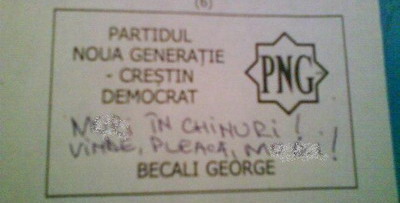 (6)
PARTIDUL
NOUA GENERAȚIE
- CREȘTIN
DEMOCRAT
PNG
ÎN CHINURI!
VINDE, PLEACĂ,
BECALI GEORGE